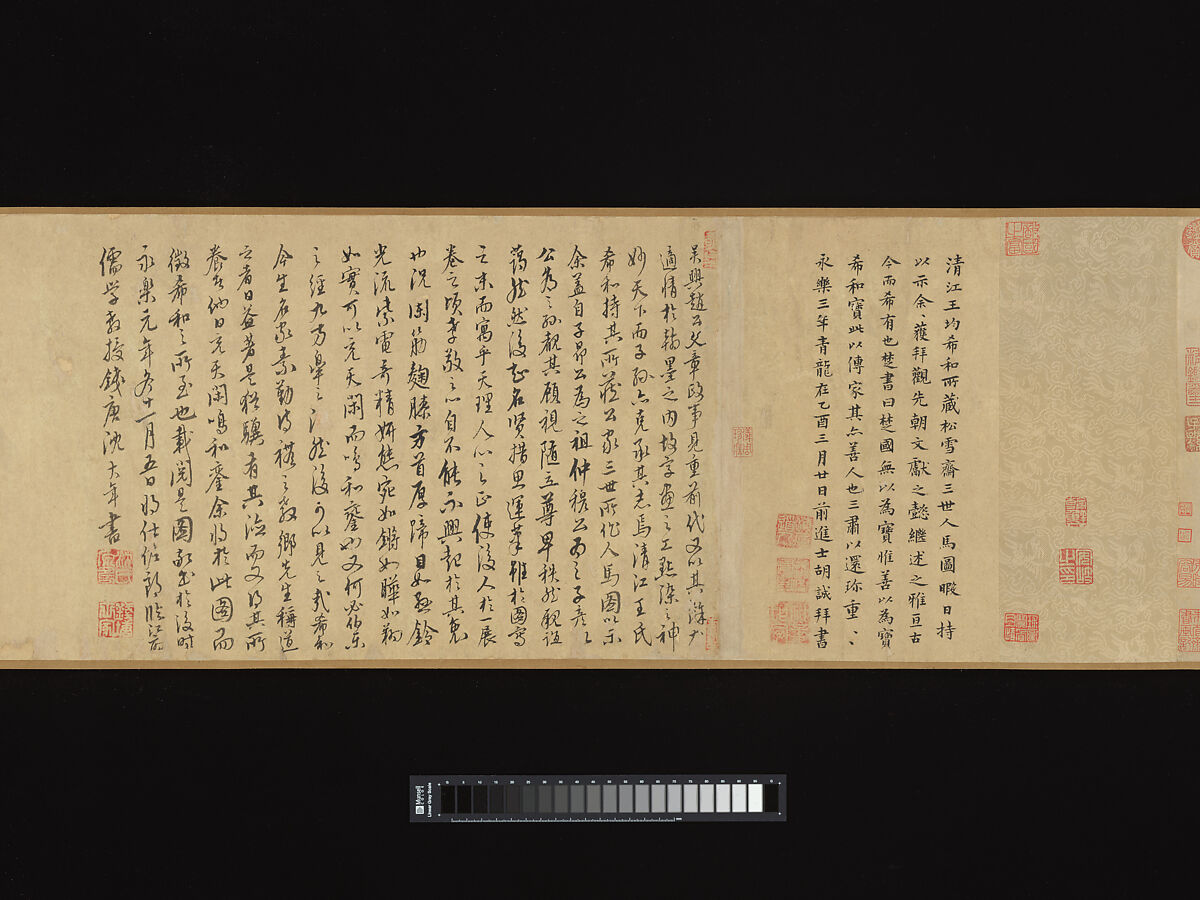 清江王均希和所藏松雪齋三世人馬圖暇日持
以示余獲拜觀先朝文獻之懿繼述之雅亘古
今而希有也楚書曰楚國無以為寶惟善以為寶
希和寶此以傳家其亦善人也三肅以還珎重〻
永樂三年青龍在乙酉三月廿日前進士胡誠拜書
吳興趙公文章政事見重前代又以其餘力
適情於翰墨之內故字畫之工點染之神
妙天下而子孫亦克承其志焉清江王氏
希和持其所藏公家三世所作人馬圖以示
余蓋自子昂公為之祖仲穆公為之子彥〻
公為之孫觀其顧視隨立尊卑秩然親誼
藹然然後知名賢措思運筆雖於圖寫
之末而寓乎天理人心之正使後人於一展
卷之頃孝敬之心自不能不興起於其
也況蘭筋麹膝方首厚蹄目如懸鈴
光流紫電奇精妍態宛如鏘如驊如
如實可以充天閑而鳴和鑾如又何必伯樂
之經九方皋之然後可以見之哉希和
今生名家素勤詩禮之教鄉先生稱道
之者日益著是猶驥者其德而又得其所
養者他日充天閑鳴和鑾余將於此圖而
徵希和之所至也載閱是圖敬書於後時
永樂元年冬十一月五日將仕佐郎臨江府
儒學教授錢唐沈大年書
Munsell
COLOR
Linear Gray Scale